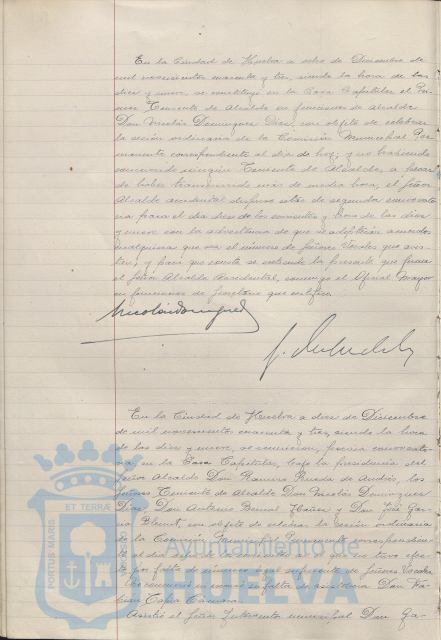 En la Ciudad de Huelva a ocho de Diciembre de
mil novecientos cuarenta y tres, siendo la hora de las
diez y nueve, se constituyó en la Casa Capitular el Pri-
mer Teniente de Alcalde en funciones de Alcalde
Don Nicolás Dominguez Diaz, con objeto de celebrar
la sesión ordinaria de la Comisión Municipal Per-
manente correspondiente al día de hoy, y no habiendo
concurrido ningún Teniente de Alcalde, a pesar
de haber transcurrido más de media hora, el Señor
Alcalde accidental dispuso citar de segunda convocato-
ria para el día diez de los corrientes y hora de las diez
y nueve con la advertencia de que se adoptarán acuerdos
cualquiera que sea el número de Señores Vocales que asis-
tan; y para que conste se extiende la presente que firma
el Señor Alcalde Accidental, conmigo el Oficial Mayor
en funciones de Secretario que certifico.
Nicolas Dominguez
En la Ciudad de Huelva a diez de Diciembre
de mil novecientos cuarenta y tres, siendo la hora
de las diez y nueve, se reunieron, previa convocato-
ria, en la Casa Capitular, bajo la presidencia del
Señor Alcalde Don Ramiro Rueda de Andrés, los
Señores Teniente de Alcalde Don Nicolás Dominguez
Diaz, Don Antonio Bernal Ibañez y Don José Gar-
cía con objeto de celebrar la sesión ordinaria
de la Comisión Municipal Permanente correspondiente
al día y que no tuvo efec-
to por falta de número legal suficiente de Señores Vocales
su falta de asistencia Don
Asistió el Señor Interventor municipal Don Ga-
ET TERRÆ
PORTUS MARIS
Ayuntamiento de
HUELVA